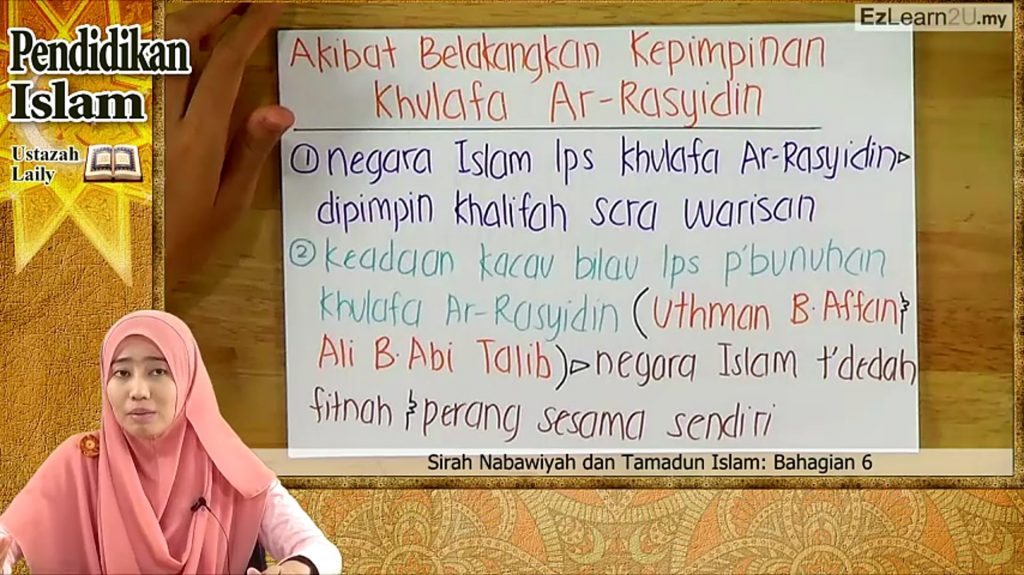 EzLearn2U.my
Pendidikan
Islam
Ustazah
Laily
Akibat Belakangkan Kepimpinan
Khulafa Ar-Rasyidin
① negara Islam lps khulafa Ar-Rasyidin▷
dipimpin khalifah scra warisan
② keadaan kacau bilau lps p'bunuhan
khulafa Ar-Rasyidin (Uthman B. Affan &
Ali B. Abi Talib) ▷ negara Islam t'dedah
fitnah & perang sesama sendiri
Sirah Nabawiyah dan Tamadun Islam: Bahagian 6